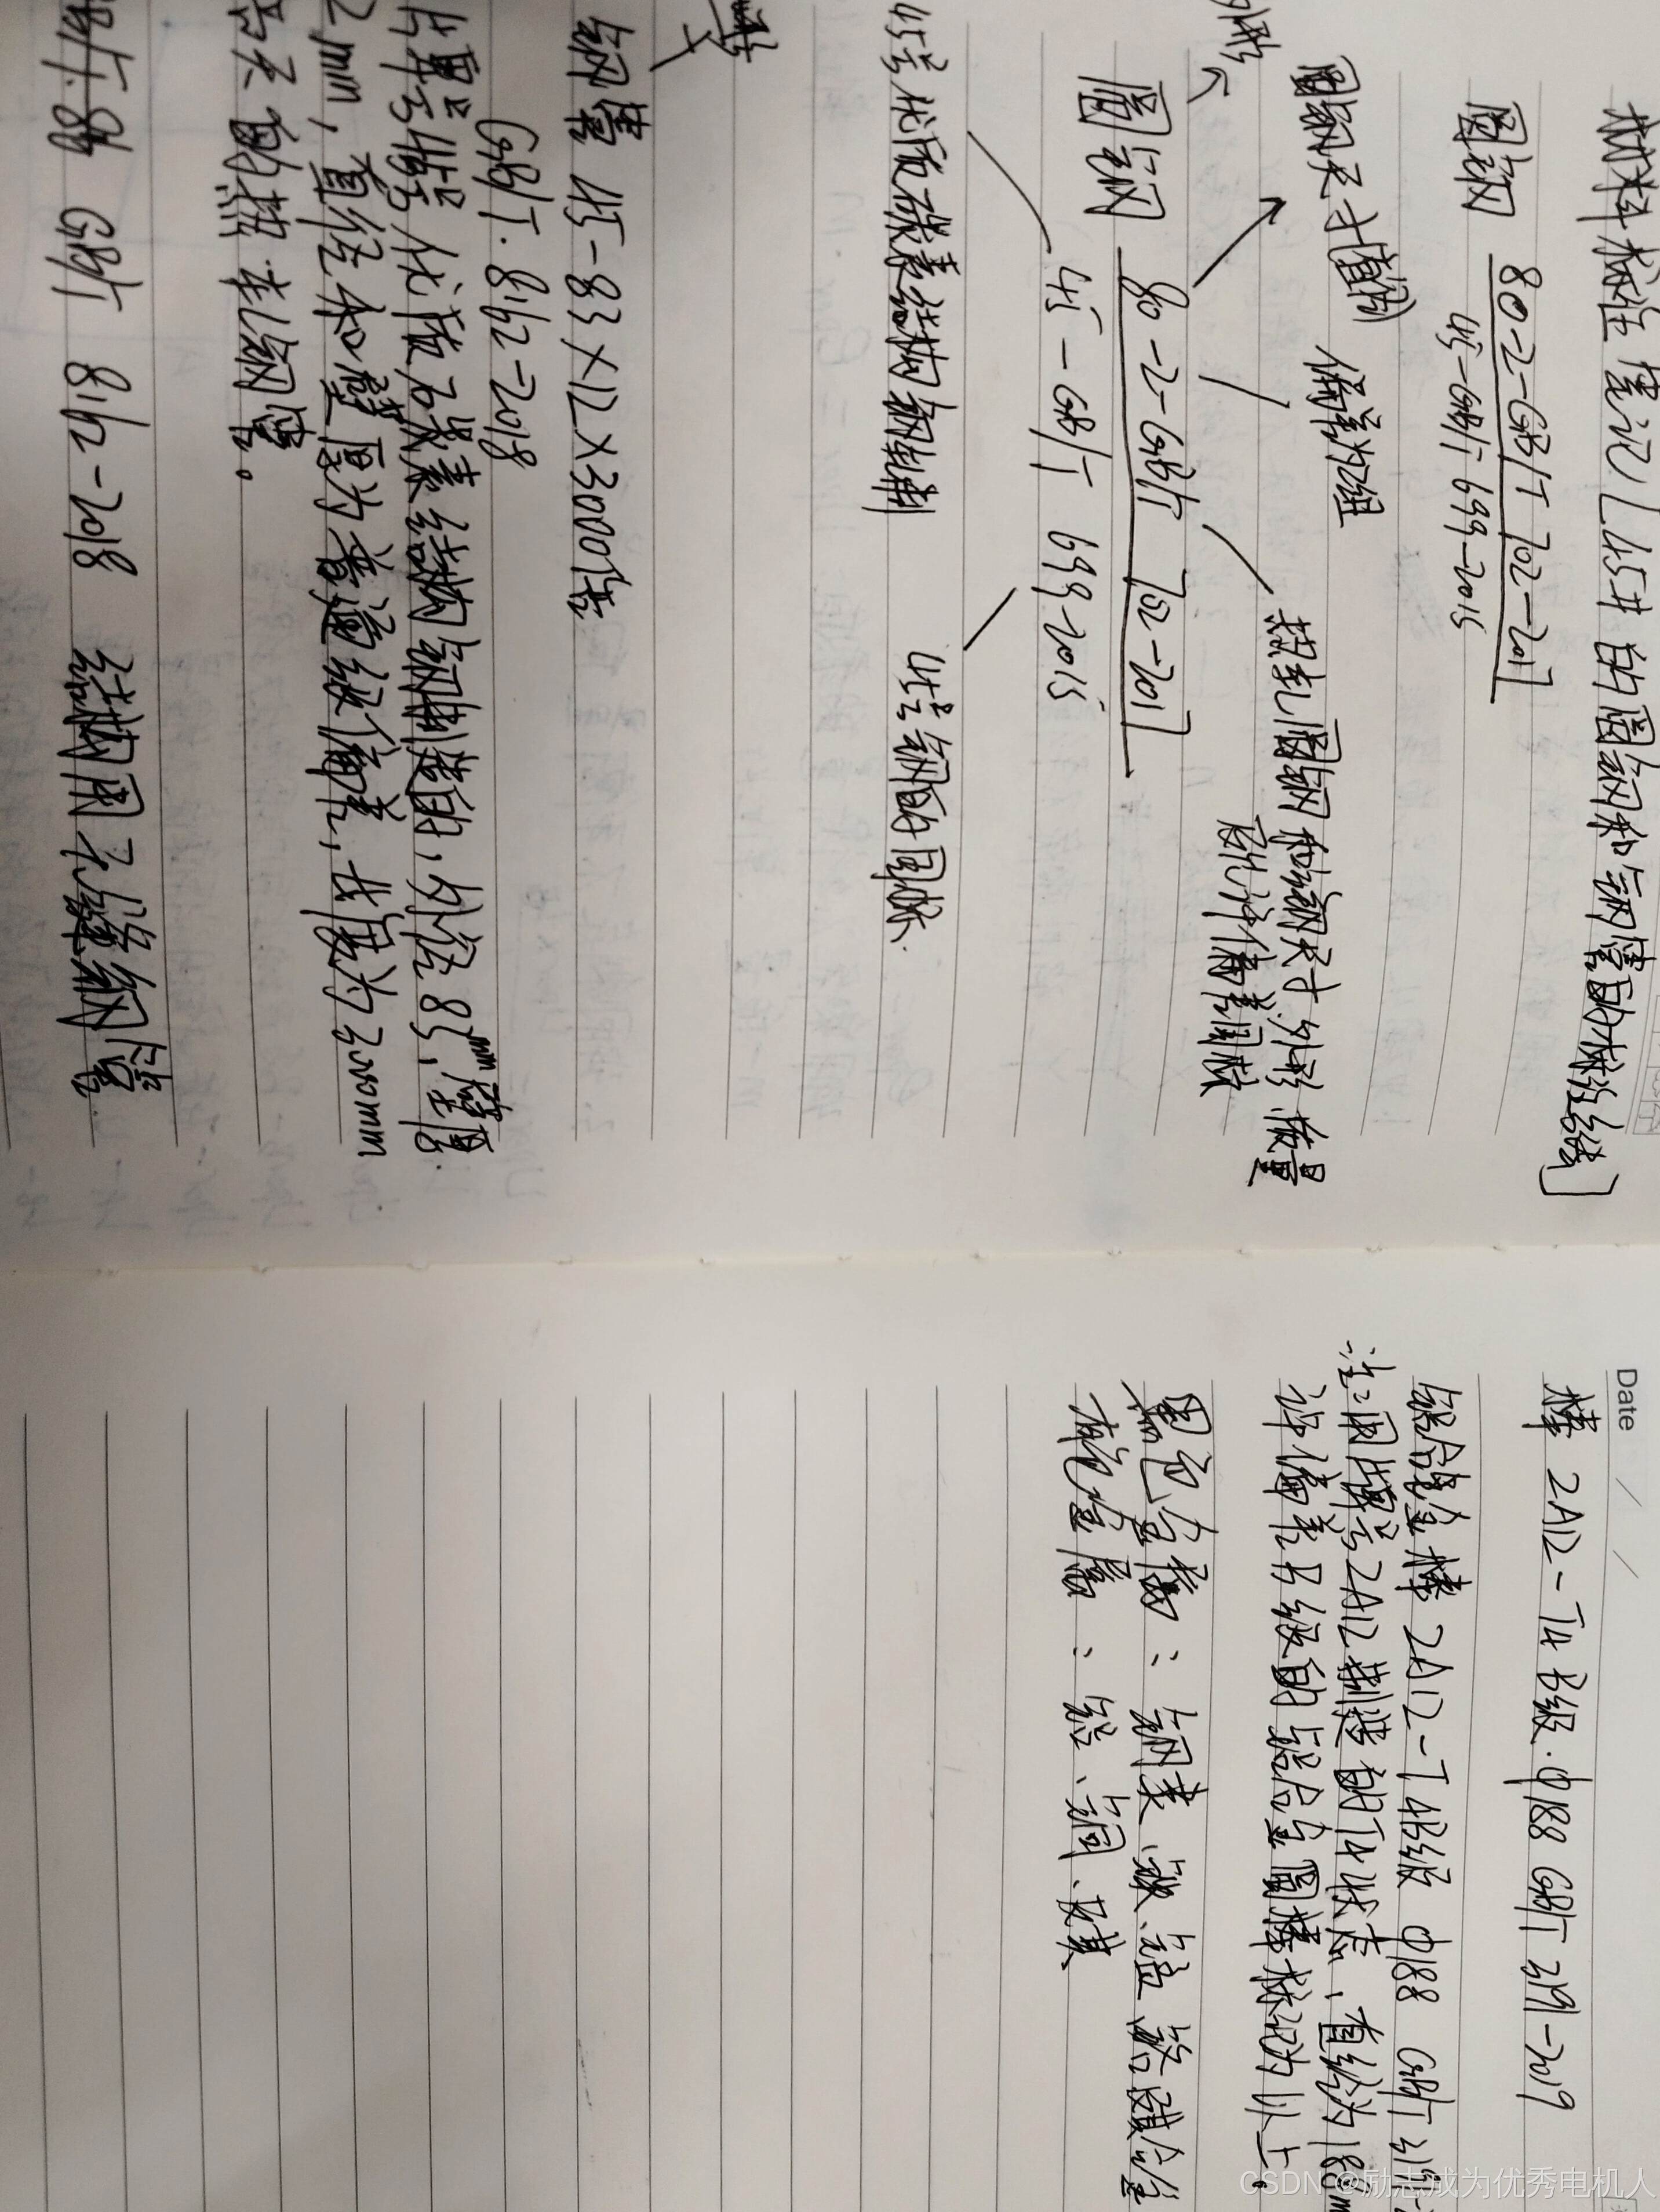 材料标注笔记[45# 的圆钢和钢管的标注线]
圆钢 80-2-GB/T 702-2017
45-GB/T 699-2015
圆钢尺寸(直径) 偏差为2组
热轧圆钢和方钢尺寸.外形 重量
的允许偏差国标
圆钢 80-2-GB/T 702-2017
45-GB/T 699-2015
45号优质碳素结构钢制 45号钢的国标.
钢管 45-83×12×3000倍
GB/T. 8162-2018
代优质碳素结构钢制造的,外径83mm,壁厚
2mm,直径和壁厚为普通级偏差,长度为3000mm
倍尺的热轧钢管。
GB/T 8162-2018 结构用无缝钢管
Date / /
棒 2A12-T4 B级.Φ188 GB/T 3191-2019
铝合金棒 2A12-T4B级 Φ188 GB/T 3191-
注:用牌号2A12制造的T4状态、直径为188m
许偏差B级的铝合金圆棒标记为以上。
黑色金属:钢类、
有色金属:铝、铜、镁
CSDN @励志成为优秀电机人